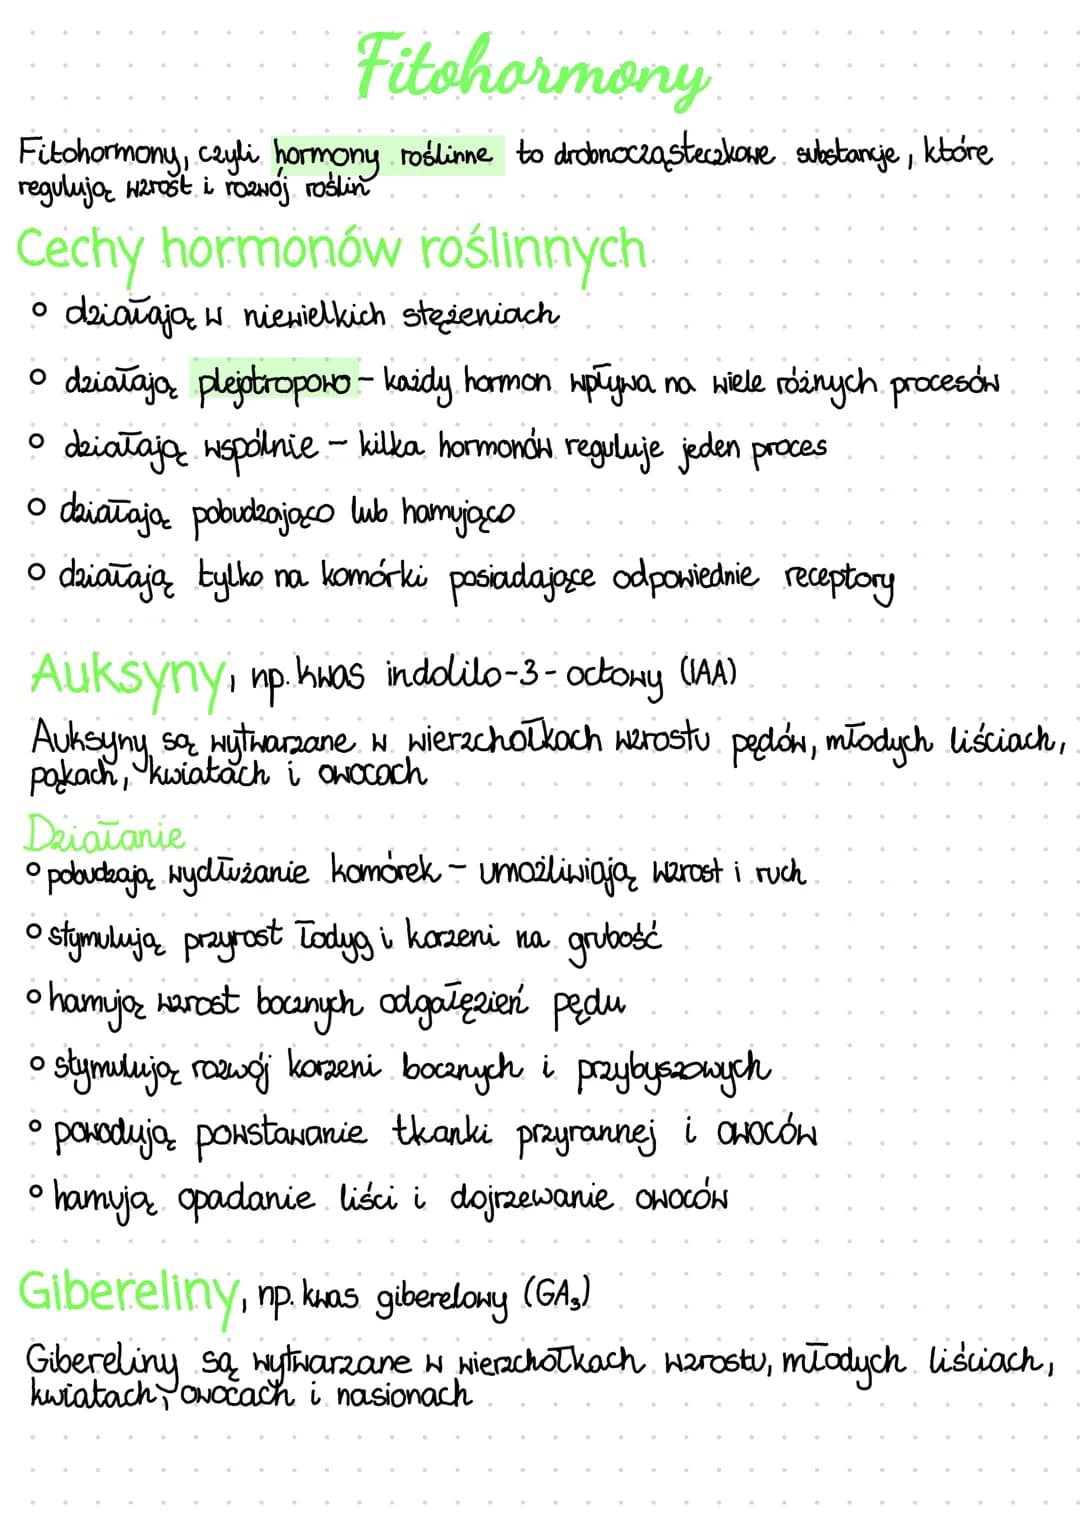 Fitohormony
Fitohormony, czyli hormony roślinne to drobnocząsteczkowe substancje, które
regulują wzrost i rozwój roślin
Cechy hormonów roślinnych
○ działają w niewielkich stężeniach
○ działają plejotropowo - każdy hormon wpływa na wiele różnych procesów
○ działają wspólnie - kilka hormonów reguluje jeden proces
○ działają pobudzająco lub hamująco
○ działają tylko na komórki posiadające odpowiednie receptory
Auksyny, np. kwas indolilo-3-octowy (IAA)
Auksyny są wytwarzane w wierzchołkach wzrostu pędów, młodych liściach,
pąkach, kwiatach i owocach
Działanie
○ pobudzają wydłużanie komórek - umożliwiają wzrost i ruch
○ stymulują przyrost łodyg i korzeni na grubość
○ hamują wzrost bocznych odgałęzień pędu
○ stymulują rozwój korzeni bocznych i przybyszowych
○ powodują powstawanie tkanki przyrannej i owoców
○ hamują opadanie liści i dojrzewanie owoców
Gibereliny, np. kwas giberelowy (GA₃)
Gibereliny są wytwarzane w wierzchołkach wzrostu, młodych liściach,
kwiatach, owocach i nasionach